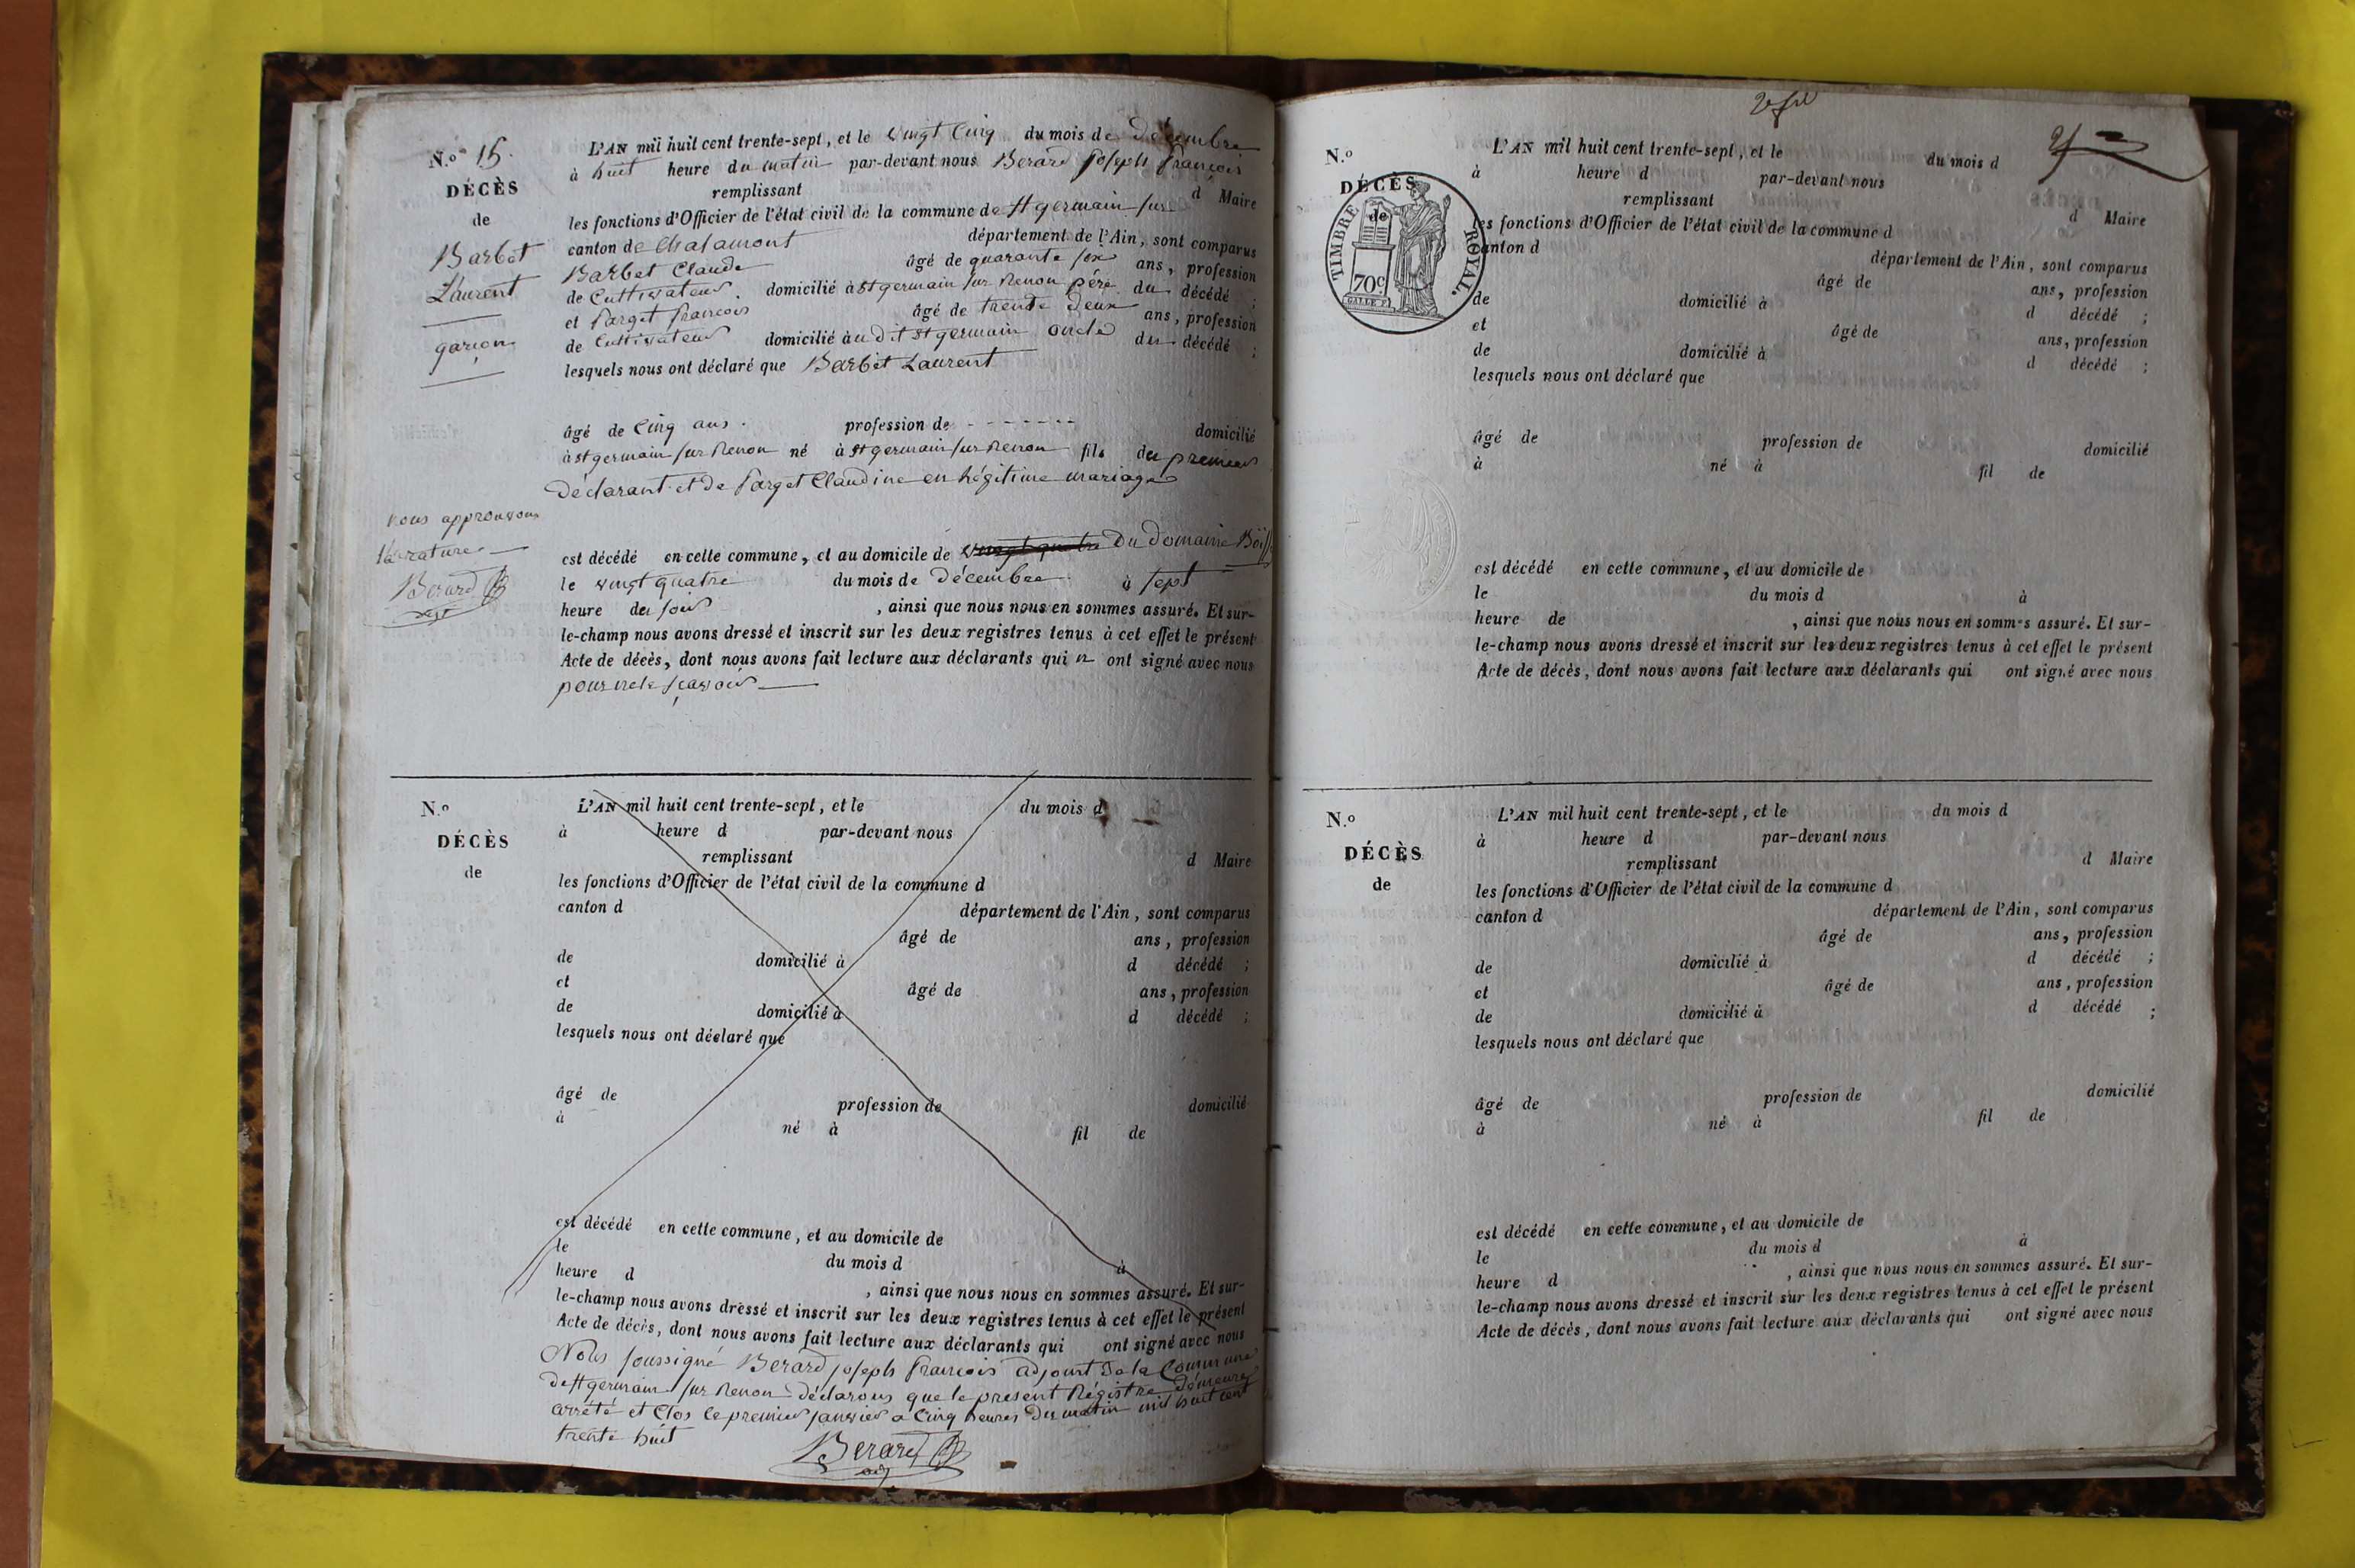 N.º 15.
DÉCÈS
de
Barbet
Laurent
garçon
nous approuvons
la rature
Berard
L'AN mil huit cent trente-sept, et le vingt Cinq du mois de décembre
à huit heure du matin par-devant nous Berard joseph françois
remplissant d Maire
les fonctions d'Officier de l'état civil de la commune de St germain sur
canton de Chalamont département de l'Ain, sont comparus
Barbet Claude âgé de quarante six ans, profession
de Cultivateur domicilié à St germain sur Renon père du décédé ;
et Parget francois âgé de trente deux ans, profession
de Cultivateur domicilié à udit St germain oncle du décédé ;
lesquels nous ont déclaré que Barbet Laurent
âgé de Cinq ans. profession de - - - - - - - domicilié
à st germain sur Renon né à st germain sur Renon fils du premier
déclarant et de Parget Claudine en légitime mariage
est décédé en cette commune, et au domicile de vingt quatre du domaine
le vingt quatre du mois de décembre à sept
heure du soir , ainsi que nous nous en sommes assuré. Et sur-
le-champ nous avons dressé et inscrit sur les deux registres tenus à cet effet le présent
Acte de décès, dont nous avons fait lecture aux déclarants qui n ont signé avec nous
pour ne le sçavoir
N.º
DÉCÈS
de
L'AN mil huit cent trente-sept, et le du mois d
à heure d par-devant nous
remplissant d Maire
les fonctions d'Officier de l'état civil de la commune d
canton d département de l'Ain, sont comparus
âgé de ans, profession
de domicilié à d décédé ;
et âgé de ans, profession
de domicilié à d décédé ;
lesquels nous ont déclaré que
âgé de profession de domicilié
à né à fil de
est décédé en cette commune, et au domicile de
le du mois d à
heure d , ainsi que nous nous en sommes assuré. Et sur-
le-champ nous avons dressé et inscrit sur les deux registres tenus à cet effet le présent
Acte de décès, dont nous avons fait lecture aux déclarants qui ont signé avec nous
Nous soussigné Berard joseph francois adjoint de la Commune
de St germain sur Renon déclarons que le present Régistre démeure
arrété et Clos le premier janvier a Cinq heures du matin mil huit cent
trente huit
Berard
N.º
DÉCÈS
de
TIMBRE ROYAL.
70c
GALLE F.
L'AN mil huit cent trente-sept, et le du mois d
à heure d par-devant nous
remplissant d Maire
les fonctions d'Officier de l'état civil de la commune d
canton d département de l'Ain, sont comparus
âgé de ans, profession
de domicilié à d décédé ;
et âgé de ans, profession
de domicilié à d décédé ;
lesquels nous ont déclaré que
âgé de profession de domicilié
à né à fil de
est décédé en cette commune, et au domicile de
le du mois d à
heure de , ainsi que nous nous en sommes assuré. Et sur-
le-champ nous avons dressé et inscrit sur les deux registres tenus à cet effet le présent
Acte de décès, dont nous avons fait lecture aux déclarants qui ont signé avec nous
N.º
DÉCÈS
de
L'AN mil huit cent trente-sept, et le du mois d
à heure d par-devant nous
remplissant d Maire
les fonctions d'Officier de l'état civil de la commune d
canton d département de l'Ain, sont comparus
âgé de ans, profession
de domicilié à d décédé ;
et âgé de ans, profession
de domicilié à d décédé ;
lesquels nous ont déclaré que
âgé de profession de domicilié
à né à fil de
est décédé en cette commune, et au domicile de
le du mois d à
heure d , ainsi que nous nous en sommes assuré. Et sur-
le-champ nous avons dressé et inscrit sur les deux registres tenus à cet effet le présent
Acte de décès, dont nous avons fait lecture aux déclarants qui ont signé avec nous